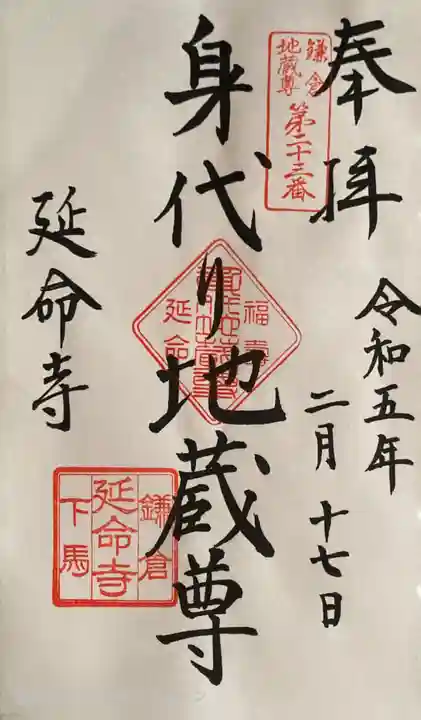 奉拝
鎌倉
地蔵尊
第二十三番
令和五年
二月十七日
身代り地蔵尊
福寿
延命
延命寺
鎌倉
延命寺
下馬